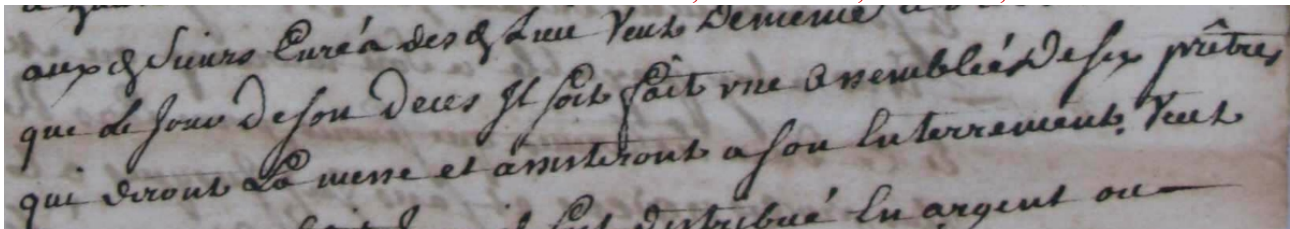 aux d sieurs Curéz des d lieu Veut de meme
que le jour de son deces Il soit fait vne assembleé de six prêtres
qui diront La messe et assisteront a son Enterrement. Veut
soit distribué En argent ou